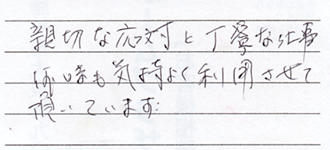 親切な応対と丁寧な仕事
何時も気持よく利用させて
頂いています。